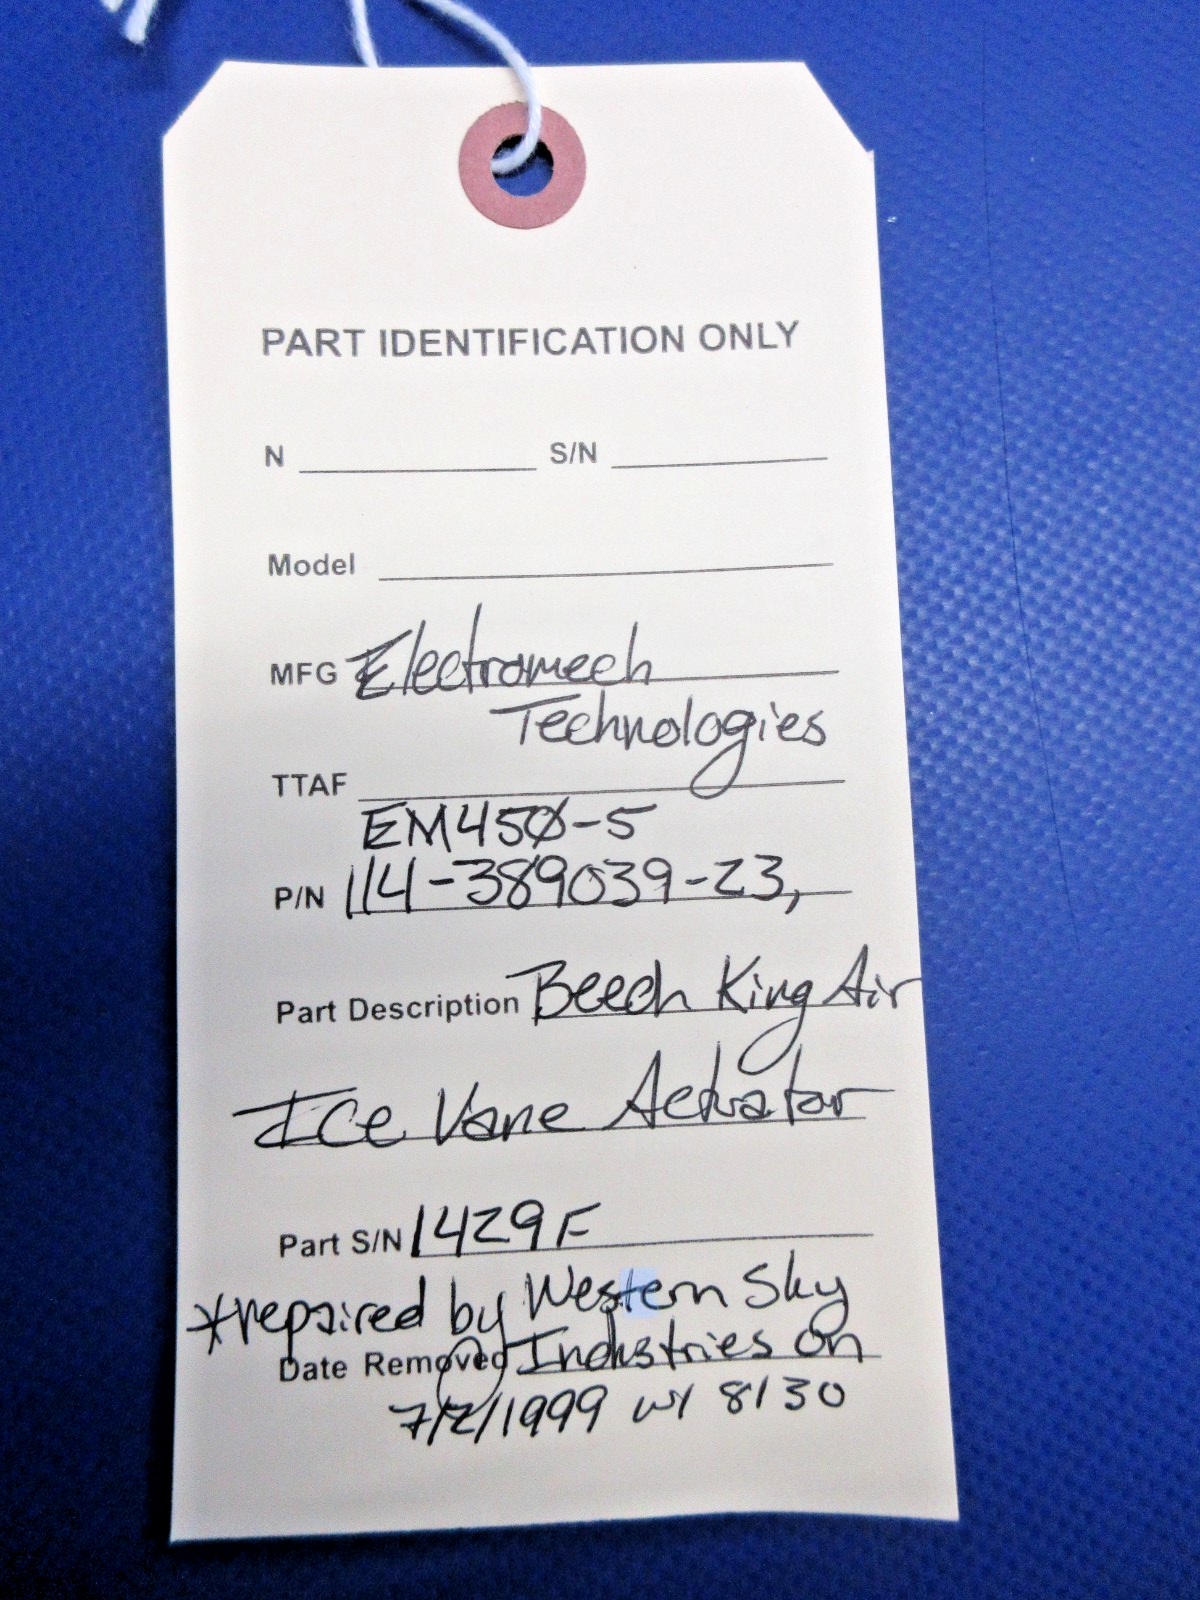 PART IDENTIFICATION ONLY
N S/N
Model
MFG Electromech
Technologies
TTAF
EM45Ø-5
P/N 114-389039-23,
Part Description Beech King Air
Ice Vane Actuator
Part S/N 1429F
*repaired by Western Sky
Date Removed Industries on
7/2/1999 w/ 8130